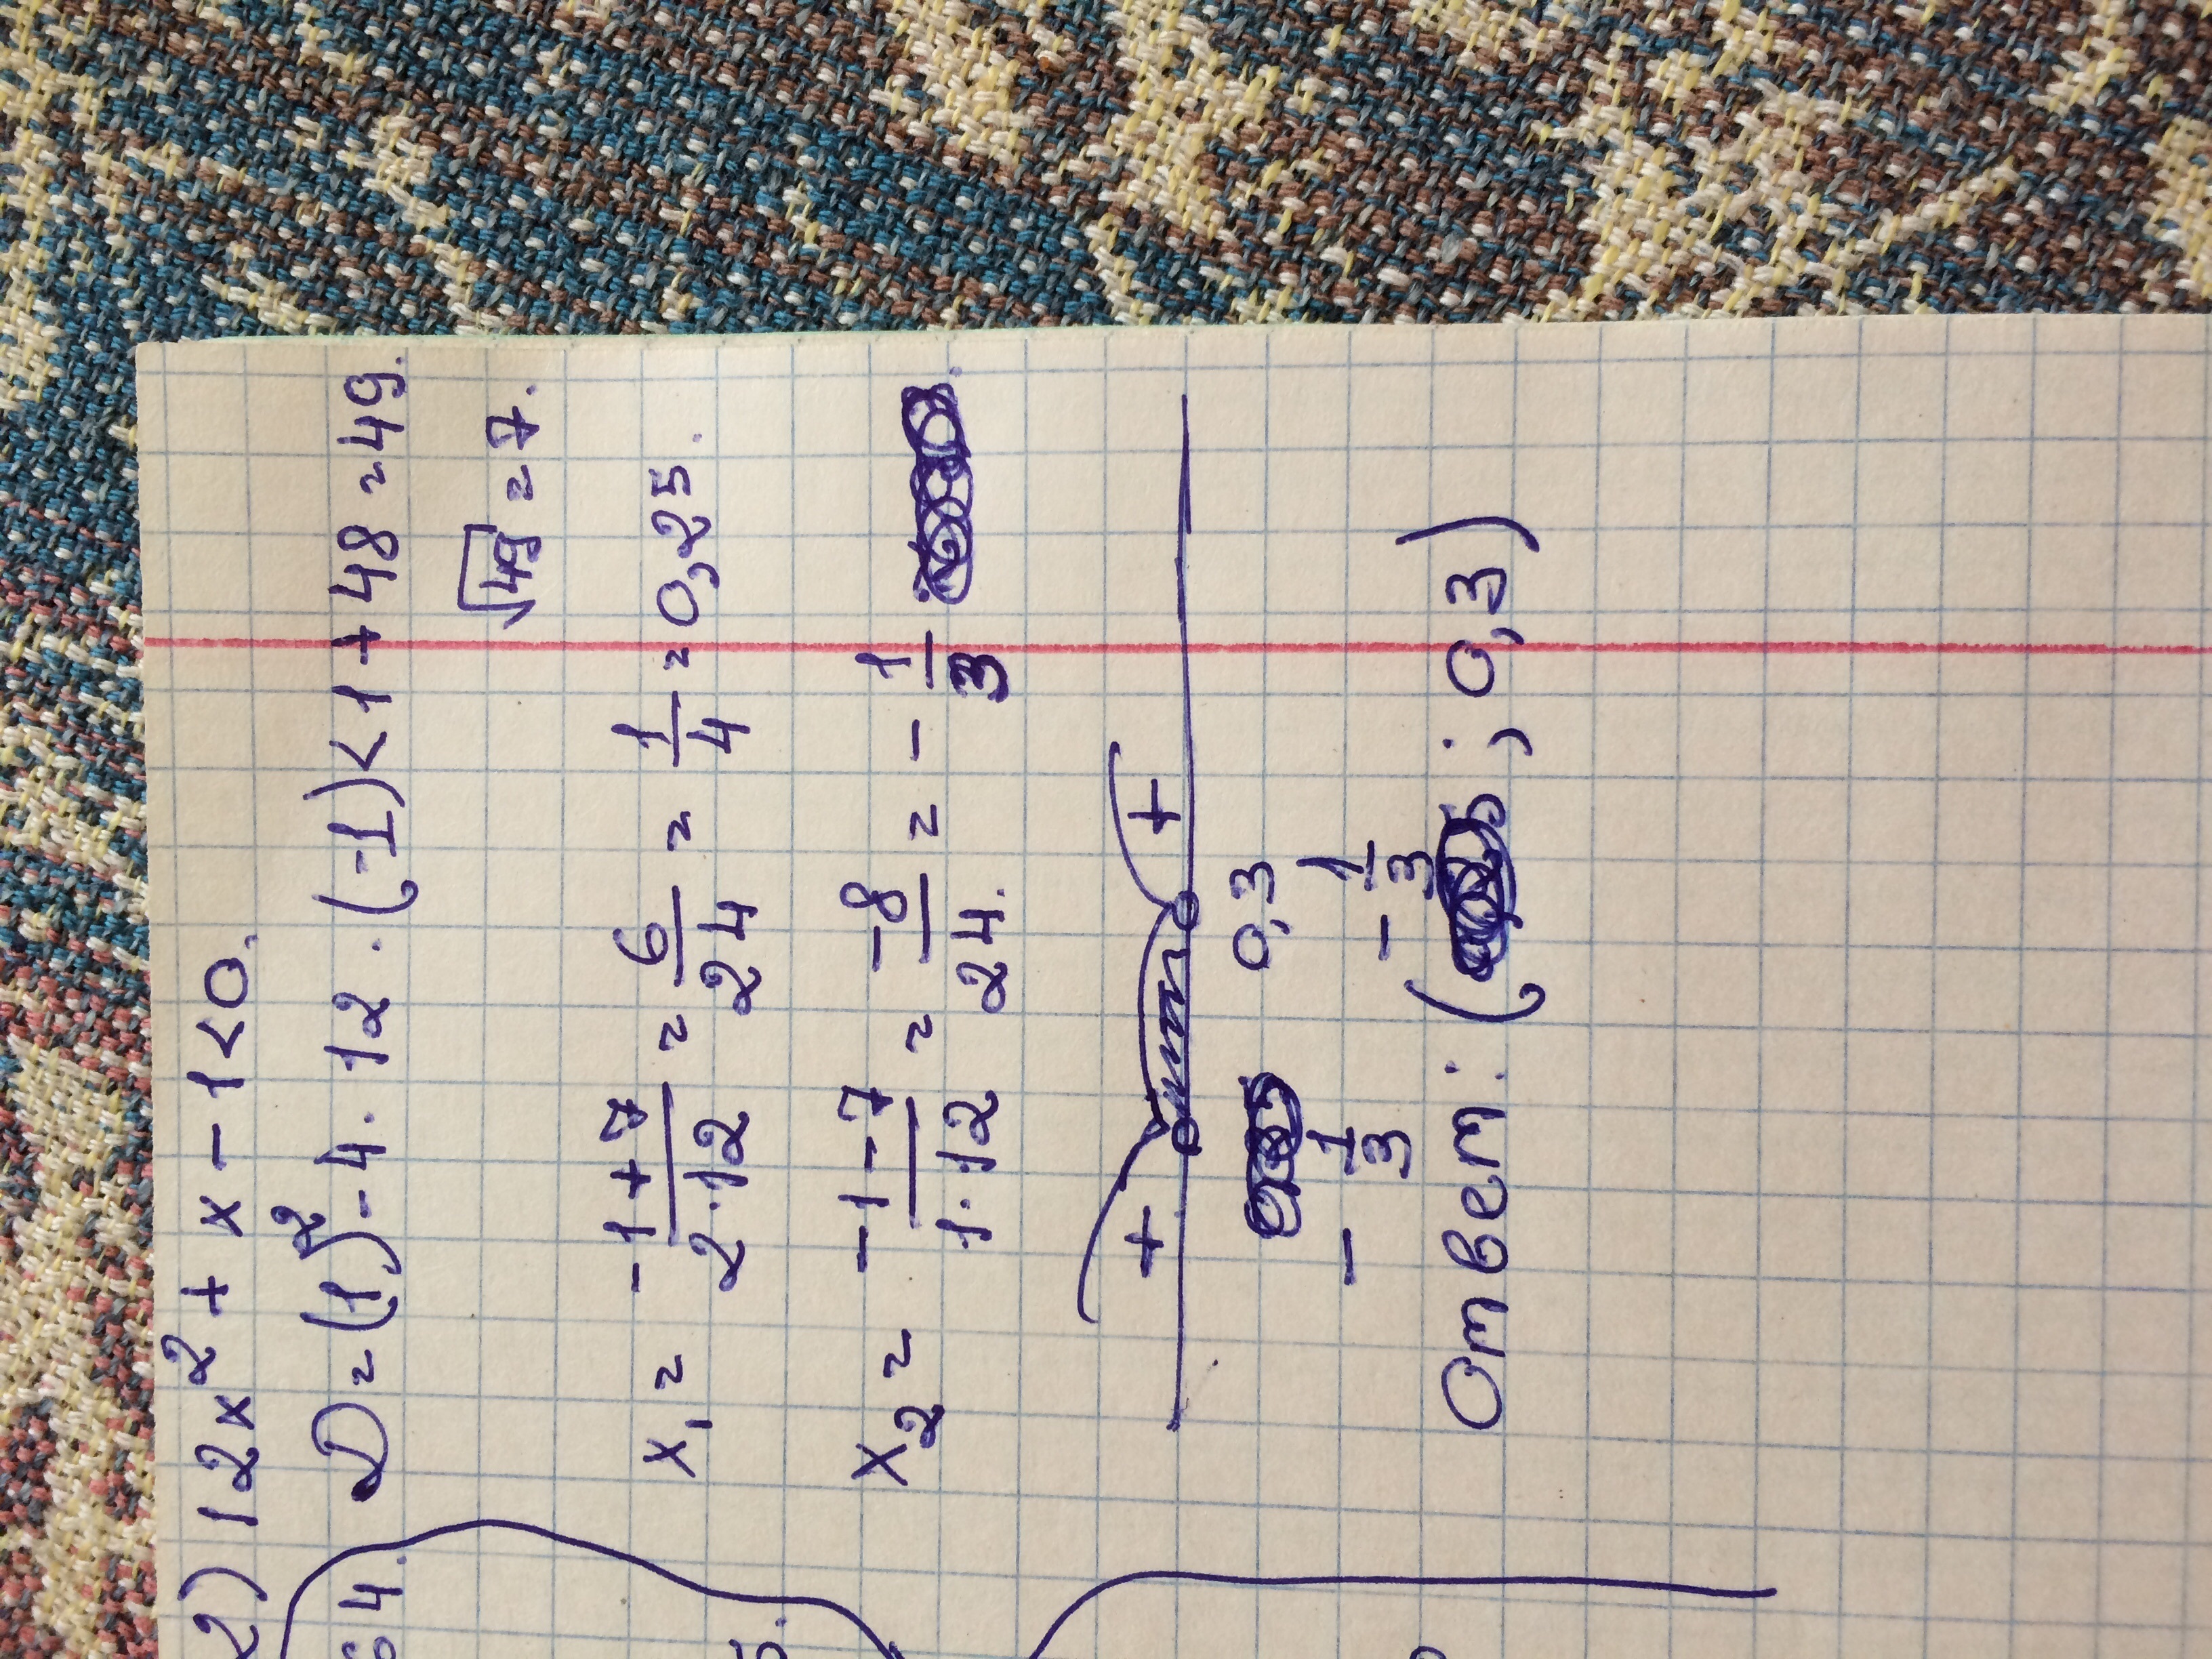 2) 12x² + x - 1 < 0.
D = (1)² - 4 · 12 · (-1) < 1 + 48 = 49.
√49 = 7.
x₁ = -1+7 / 2·12 = 6/24 = 1/4 = 0,25.
x₂ = -1-7 / 1·12 = -8/24. = -1/3 .
+ +
0,3
-1/3 -1/3
Ответ: ( ; 0,3)
4.
5.